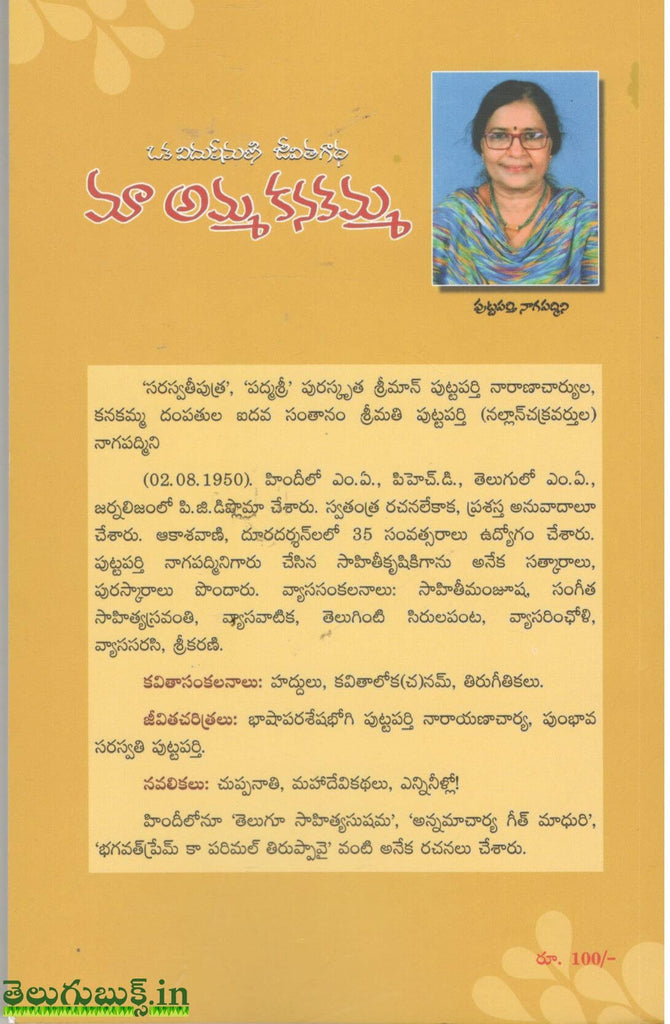 ఒక విదుషీమణి జీవితగాథ
మా అమ్మ కనకమ్మ
పుట్టపర్తి నాగపద్మిని
'సరస్వతీపుత్ర', 'పద్మశ్రీ' పురస్కృత శ్రీమాన్ పుట్టపర్తి నారాణాచార్యుల,
కనకమ్మ దంపతుల ఐదవ సంతానం శ్రీమతి పుట్టపర్తి (నల్లాన్‌చక్రవర్తుల)
నాగపద్మిని
(02.08.1950). హిందీలో ఎం.ఏ., పిహెచ్.డి., తెలుగులో ఎం.ఏ.,
జర్నలిజంలో పి.జి.డిప్లొమా చేశారు. స్వతంత్ర రచనలేకాక, ప్రశస్త అనువాదాలూ
చేశారు. ఆకాశవాణి, దూరదర్శన్‌లలో 35 సంవత్సరాలు ఉద్యోగం చేశారు.
పుట్టపర్తి నాగపద్మినిగారు చేసిన సాహితీకృషికిగాను అనేక సత్కారాలు,
పురస్కారాలు పొందారు. వ్యాససంకలనాలు: సాహితీమంజూష, సంగీత
సాహిత్యస్రవంతి, వ్యాసవాటిక, తెలుగింటి సిరులపంట, వ్యాసరింఛోళి,
వ్యాససరసి, శ్రీకరణి.
కవితాసంకలనాలు: హద్దులు, కవితాలోక(చ)నమ్, తిరుగీతికలు.
జీవితచరిత్రలు: భాషాపరశేషభోగి పుట్టపర్తి నారాయణాచార్య, పుంభావ
సరస్వతి పుట్టపర్తి.
నవలికలు: చుప్పనాతి, మహాదేవికథలు, ఎన్నినీళ్లో!
హిందీలోనూ 'తెలుగూ సాహిత్యసుషమ', 'అన్నమాచార్య గీత్ మాధురి',
'భగవత్‌ప్రేమ్ కా పరిమల్ తిరుప్పావై' వంటి అనేక రచనలు చేశారు.
రూ. 100/-
తెలుగుబుక్స్.in